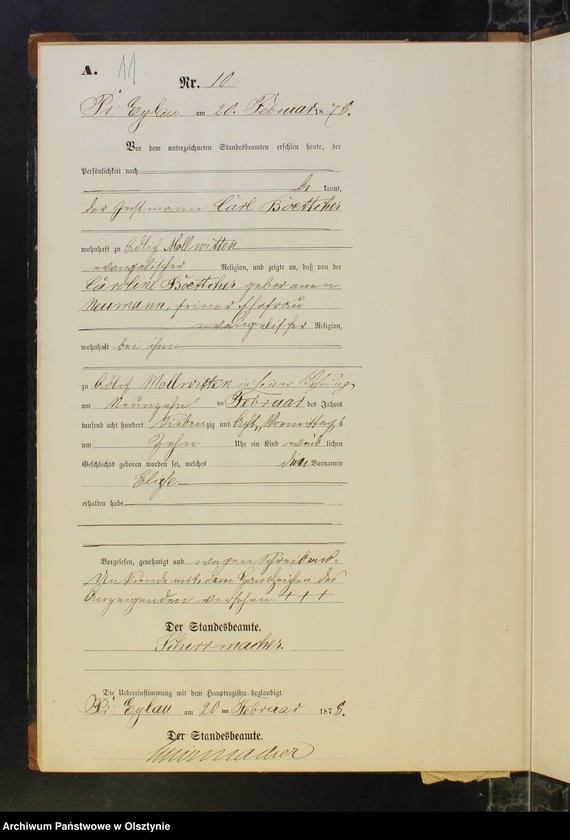 A.
11
Nr. 10
Pr. Eylau am 20. Februar 1878.
Vor dem unterzeichneten Standesbeamten erschien heute, der
Persönlichkeit nach
be kannt,
der Instmann Carl Boettcher
wohnhaft zu Adlig Mollwitten
evangelischer Religion, und zeigte an, daß von der
Caroline Boettcher geborenen
Neumann, seiner Ehefrau
evangelischer Religion,
wohnhaft bei ihm
zu Adlig Mollwitten in seiner Wohnung
am Neunzehn ten Februar des Jahres
tausend acht hundert siebenzig und Acht, Vormittags
um Zehn Uhr ein Kind weib lichen
Geschlechts geboren worden sei, welches den Vornamen
Elise
erhalten habe
Vorgelesen, genehmigt und wegen Schreibens-
Unkunde mit dem Handzeichen des
Anzeigenden versehen. + + +
Der Standesbeamte.
Schirrmacher.
Die Uebereinstimmung mit dem Hauptregister beglaubigt.
Pr. Eylau am 20 ten Februar 1878.
Der Standesbeamte.
Schirrmacher
Archiwum Państwowe w Olsztynie